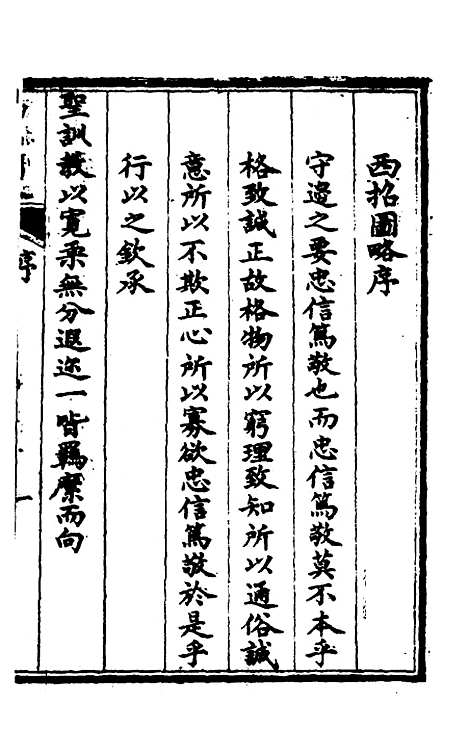 西招圖略序
守邊之要忠信篤敬也而忠信篤敬莫不本乎
格致誠正故格物所以窮理致知所以通俗誠
意所以不欺正心所以寡欲忠信篤敬於是乎
行以之欽承
聖訓教以寬柔無分遐迩一皆羈縻而向
序
一